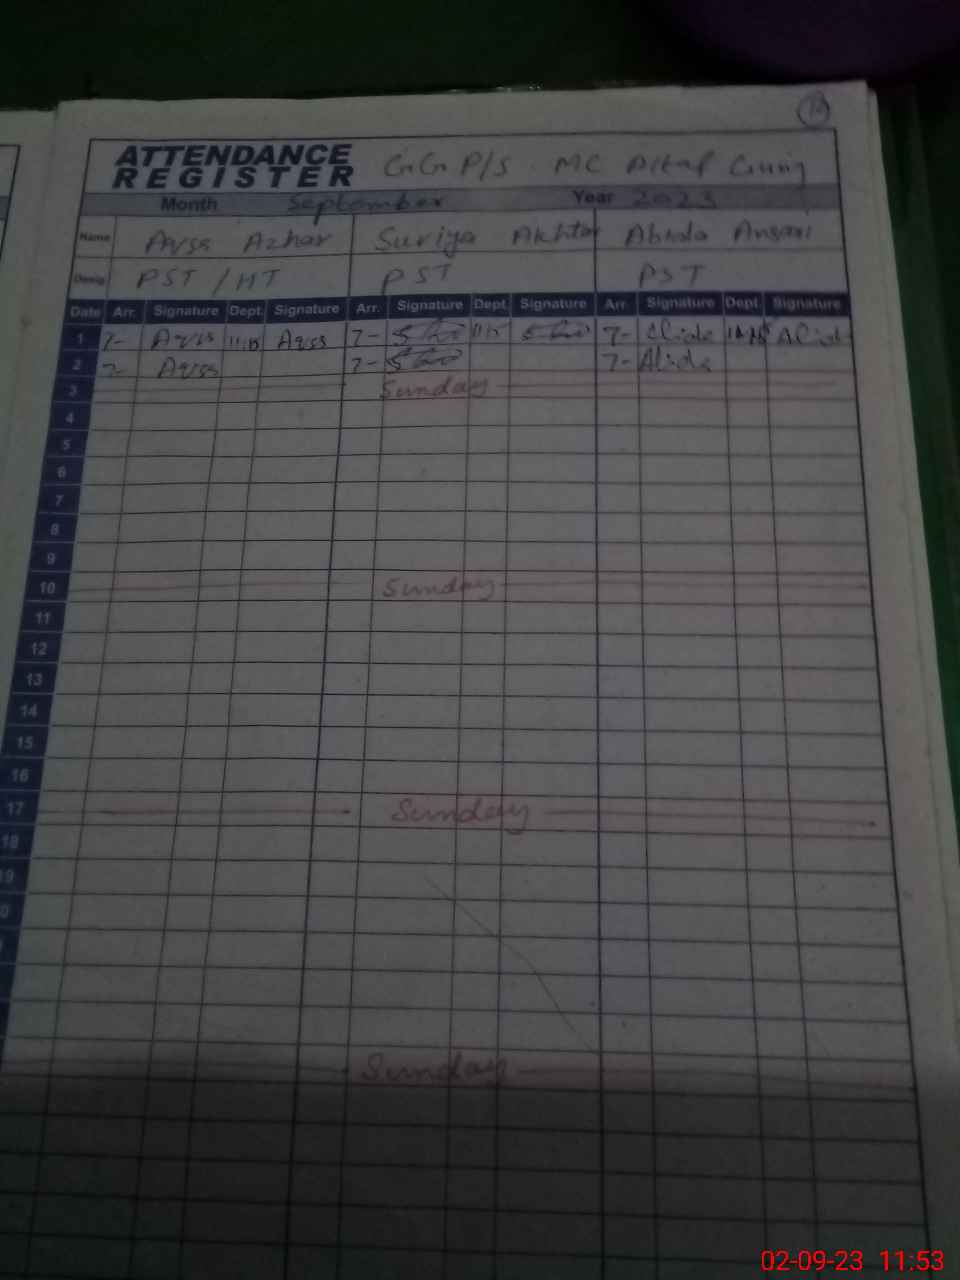 ATTENDANCE
REGISTER
GG P/S MC Altaf
Month September Year 2023
Name Azhar Suriya Akhtar Abida Ansari
Desig PST / HT PST PST
Date Arr. Signature Dept. Signature Arr. Signature Dept. Signature Arr. Signature Dept. Signature
1 7- 7- 7-
2 7- 7- Abida
3 Sunday
4
5
6
7
8
9
10 Sunday
11
12
13
14
15
16
17 Sunday
18
19
Sunday
02-09-23 11:53